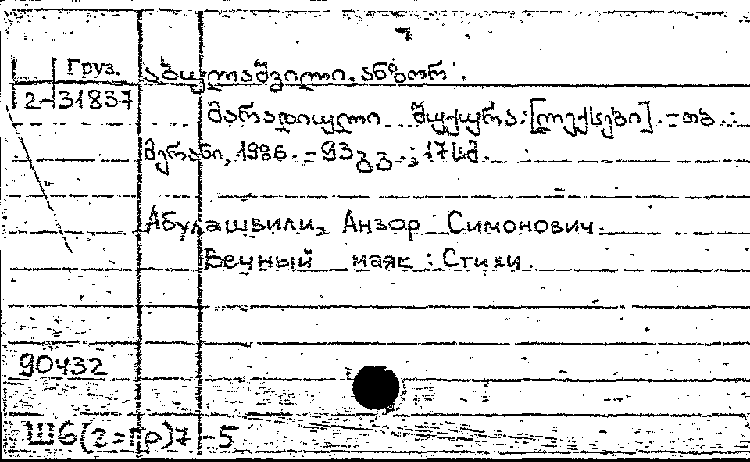 Груз.
2-31837
აბულაშვილი, ანზორ.
მარადიული შუქურა: [ლექსები]. - თბ.:
მერანი, 1986. - 93 გვ.; 17 სმ.
Абулашвили, Анзор Симонович.
Вечный маяк: Стихи.
90432
Ш6(2=Гр)7-5